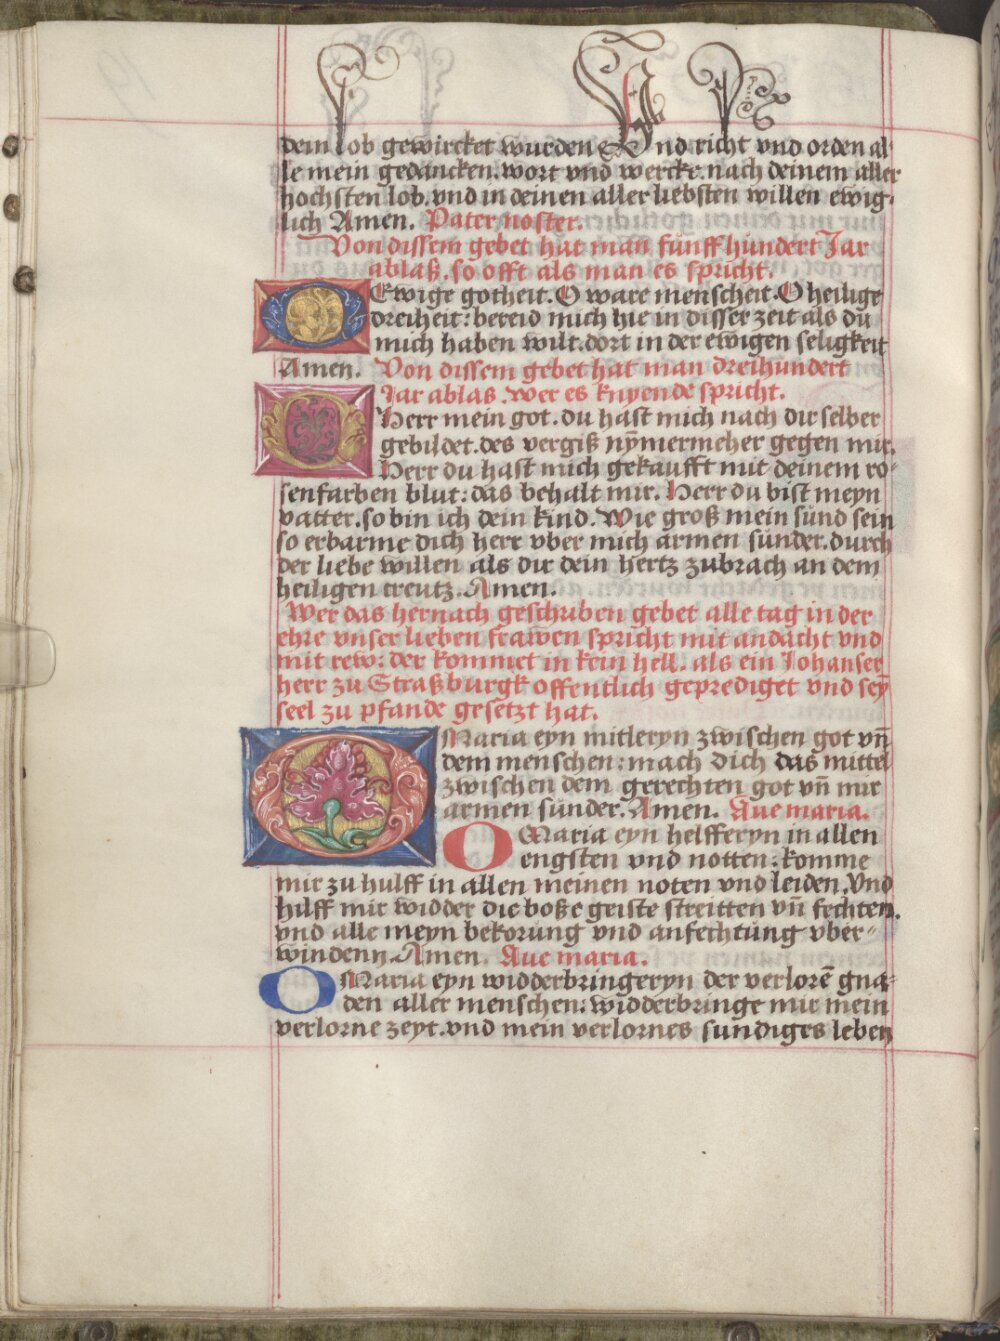 dein lob gewircket wurden Und richt vnd orden al
le mein gedancken. wort vnd wercke. nach deinem aller
hochsten lob. vnd in deinen aller liebsten willen ewig-
lich Amen. Pater noster.
Von dissem gebet hat man funffhundert Jar
ablaß. so offt als man es spricht.
O Ewige gotheit. O ware menscheit. O heilige
dreiheit: bereid mich hie in disser zeit als du
mich haben wilt. dort in der ewigen seligkeit
Amen. Von dissem gebet hat man dreihundert
Jar ablas. wer es knyende spricht.
O Herr mein got. du hast mich nach dir selber
gebildet. des vergiß nȳmermeher gegen mir.
Herr du hast mich gekaufft mit deinem ro-
senfarben blut: das behalt mir. Herr du bist meyn
vatter. so bin ich dein kind. Wie groß mein sund sein
so erbarme dich herr vber mich armen sunder. durch
der liebe willen als dir dein hertz zubrach an dem
heiligen creutz. Amen.
Wer das hernach geschriben gebet alle tag in der
ehre vnser lieben frawen spricht mit andacht vnd
mit rew: der kommet in kein hell. als ein Johanser
herr zu Straßburgk offentlich geprediget vnd sey
seel zu pfande gesetzt hat.
O Maria eyn mitleryn zwischen got vn̄
dem menschen: mach dich das mittel
zwischen dem gerechten got vn̄ mir
armen sunder. Amen. Aue maria.
O Maria eyn helfferyn in allen
engsten vnd notten: komme
mir zu hulff in allen meinen noten vnd leiden. Vnd
hilff mir widder die boße geiste streitten vn̄ fechten.
vnd alle meyn bekorung vnd anfechtung vber-
windenn. Amen. Aue maria.
O Maria eyn widderbringeryn der verlorē gna-
den aller menschen: widderbringe mir mein
verlorne zeyt. vnd mein verlornes sundiges leben